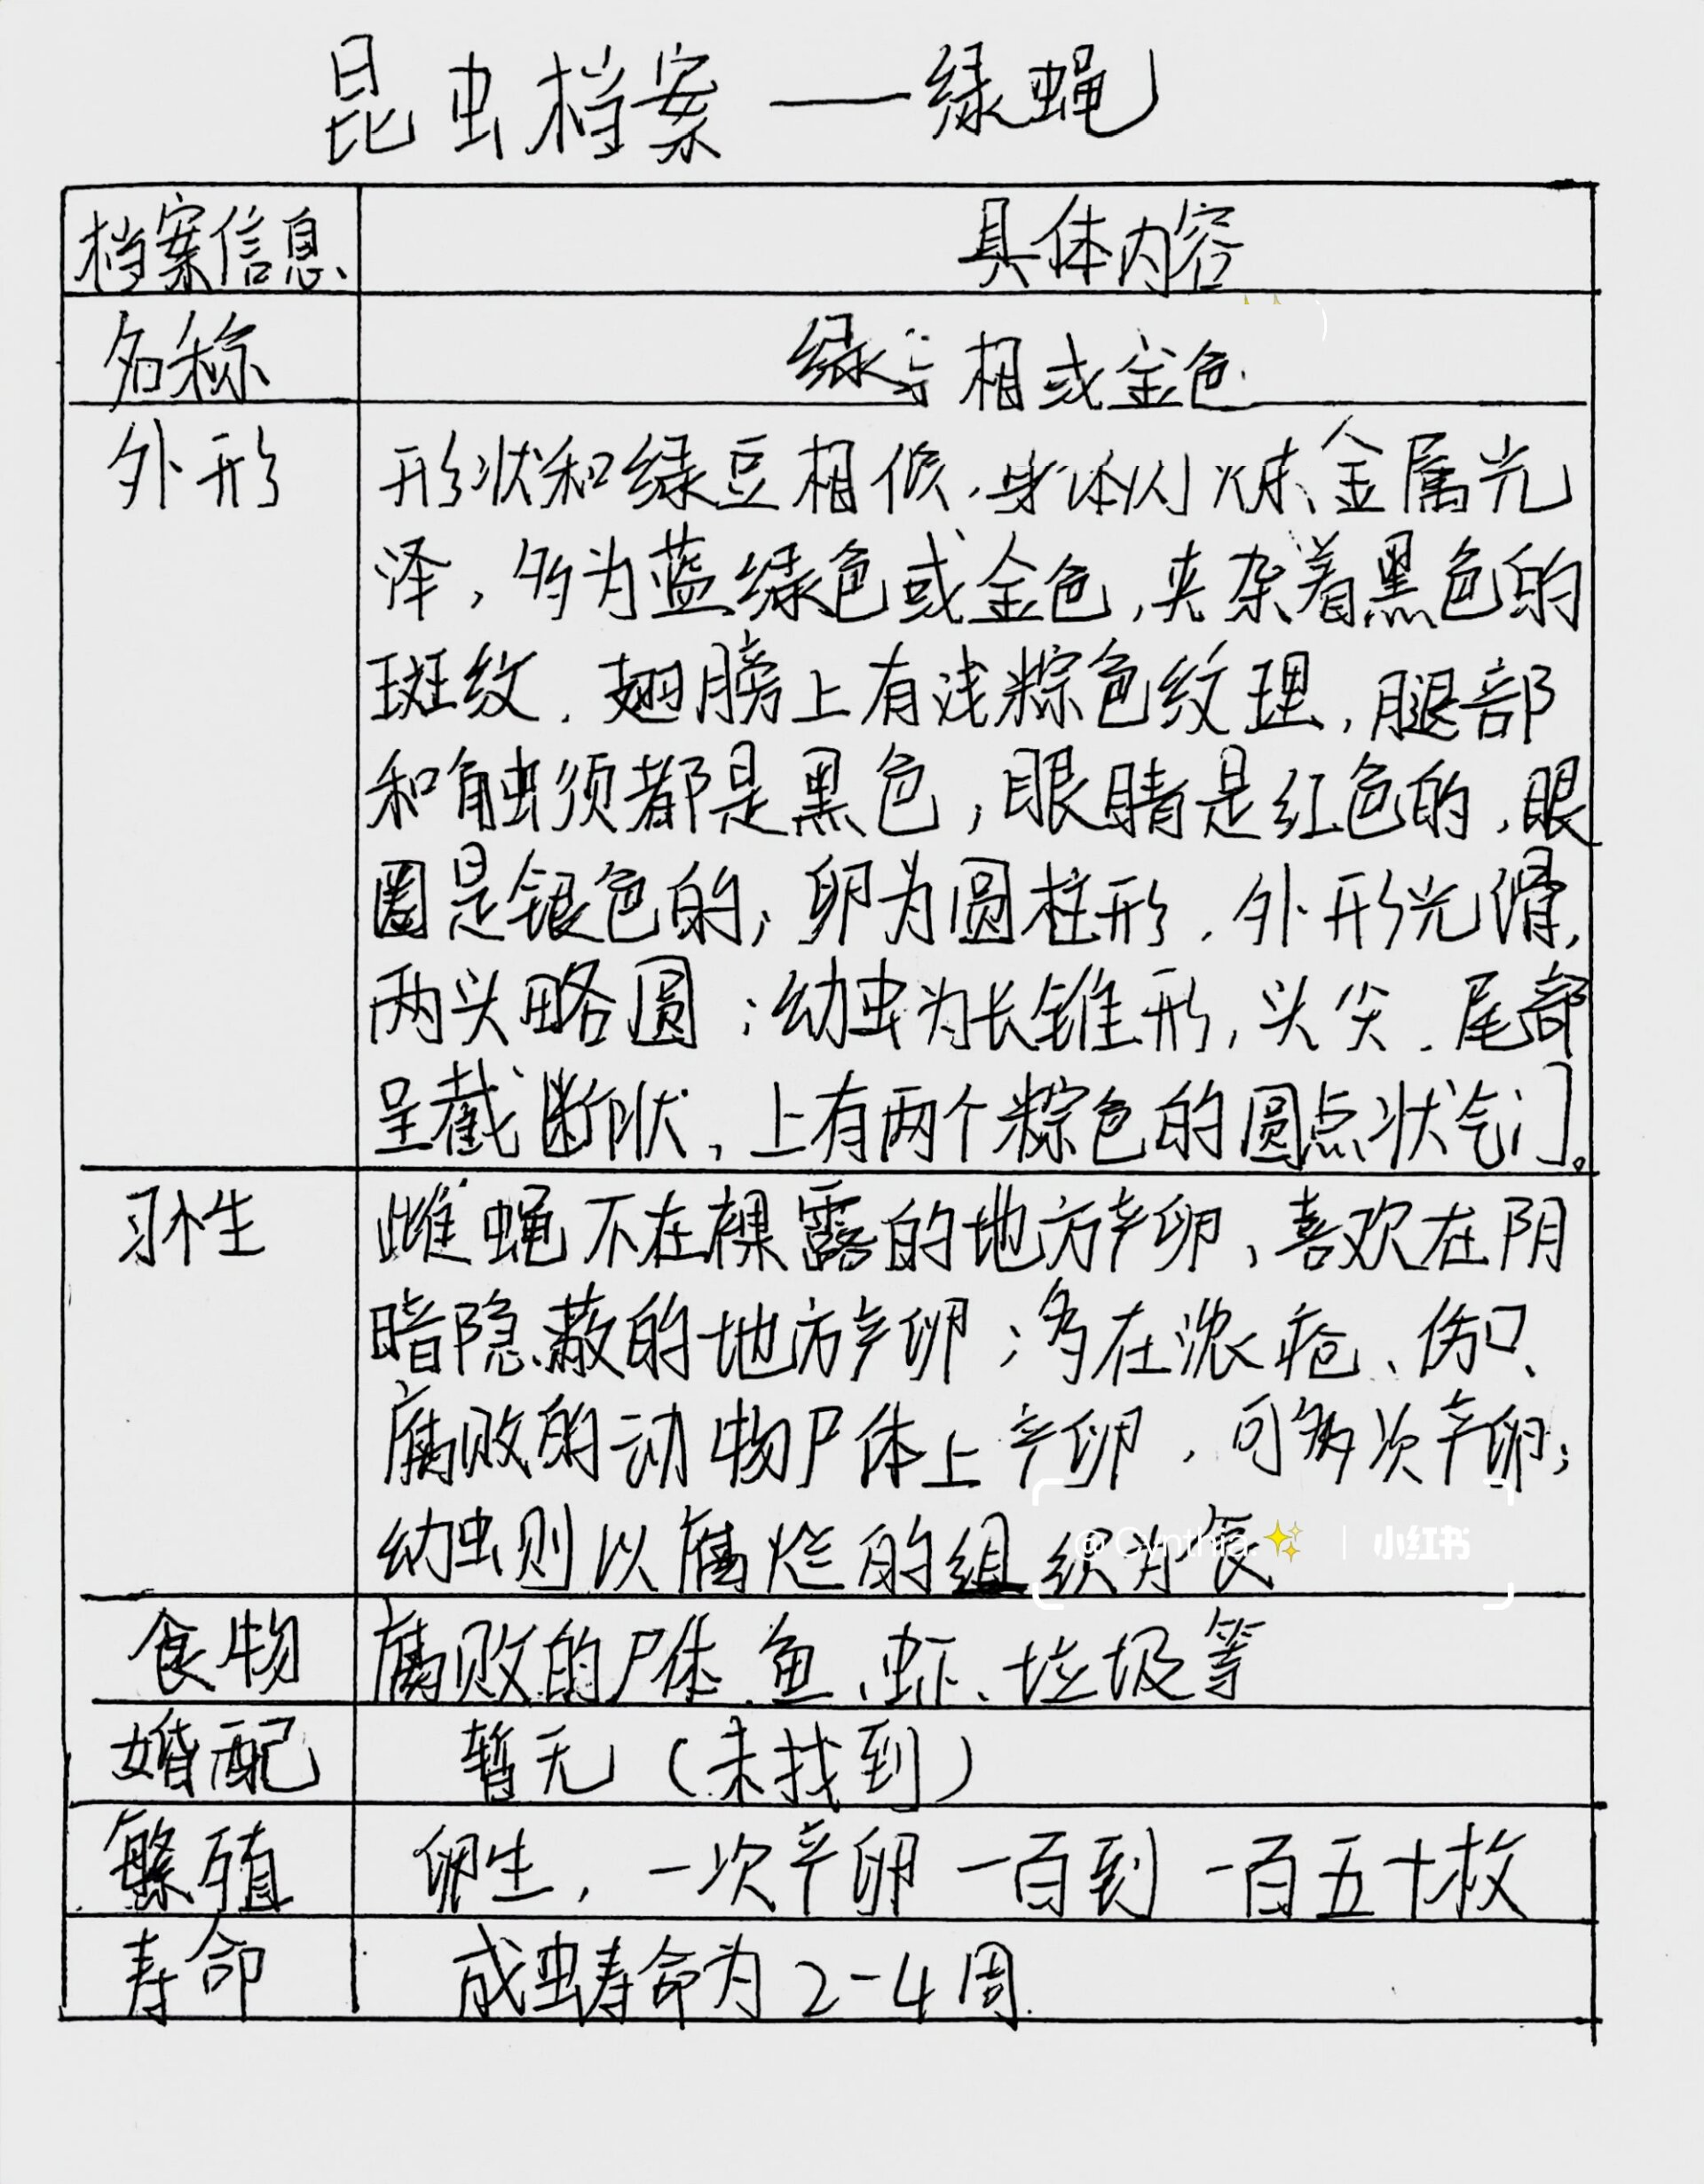 昆虫档案——绿蝇
档案信息 具体内容
名称 绿 相或金色
外形 形状和绿豆相似,身体闪烁金属光
泽,多为蓝绿色或金色,夹杂着黑色的
斑纹.翅膀上有浅粽色纹理,腿部
和触须都是黑色,眼睛是红色的,眼
圈是银色的,卵为圆柱形.外形光滑,
两头略圆;幼虫为长锥形,头尖.尾部
呈截断状,上有两个粽色的圆点状气门。
习性 雌蝇不在裸露的地方产卵,喜欢在阴
暗隐蔽的地方产卵;多在浓疮、伤口、
腐败的动物尸体上产卵,可多次产卵;
幼虫则以腐烂的组织为食
@Cynthia.✨ | 小红书
食物 腐败的尸体、鱼、虾、垃圾等
婚配 暂无(未找到)
繁殖 卵生,一次产卵一百到一百五十枚
寿命 成虫寿命为2-4周.